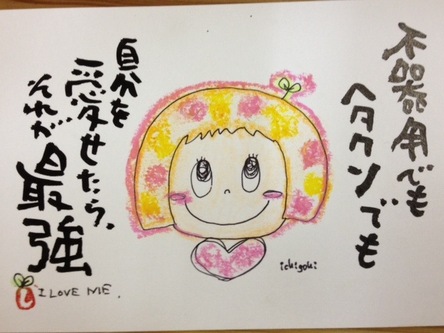 不器用でも
ヘタクソでも
自分を
愛せたら、
それが
最強
I LOVE ME.
ichigoki